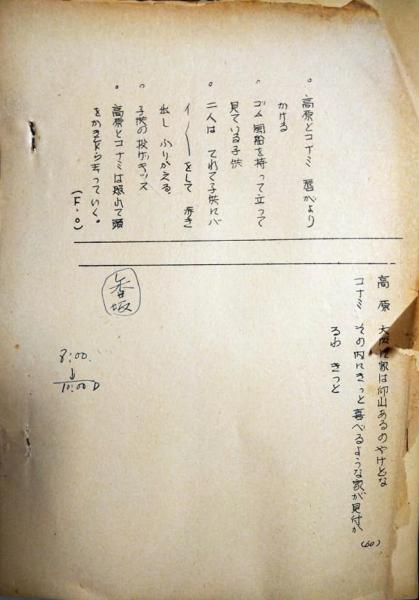 高原 大阪に家は仰山あるのやけどな
コナミ その内にきっと喜べるような家が見付か
るわ きっと
(60)
。高原とコナミ 唇がより
かける
。ゴム風船を持って立って
見ている子供
。二人は てれて子供にバ
イ〳〵をして 歩き
出し ふりかえる。
。子供の投げキッス
。高原とコナミは照れて頭
をかきながら去っていく。
(F・O)
香坂
8:00
↓
10:00